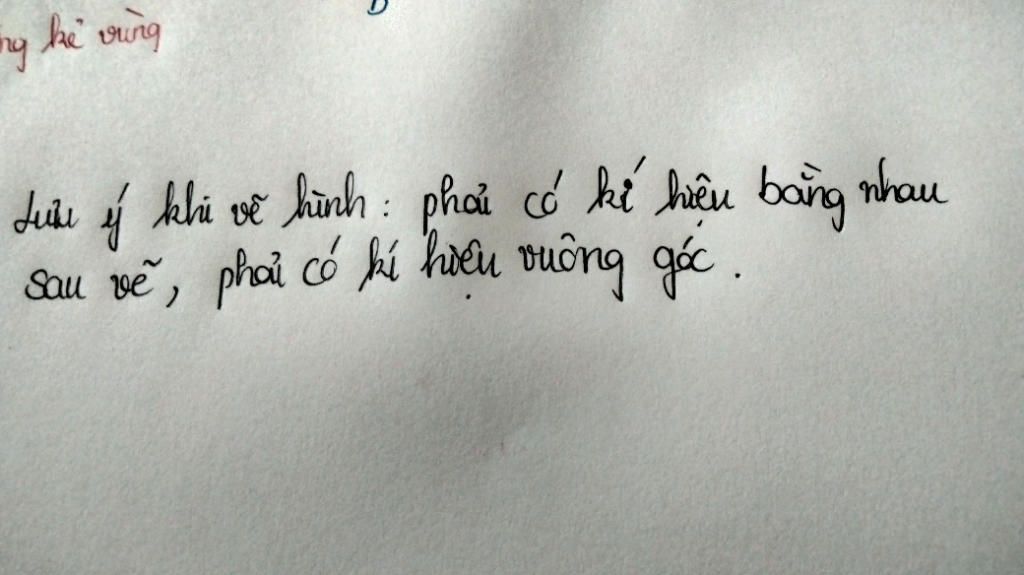 kẻ vùng
Lưu ý khi vẽ hình : phải có kí hiệu bằng nhau
sau vẽ, phải có kí hiệu vuông góc.